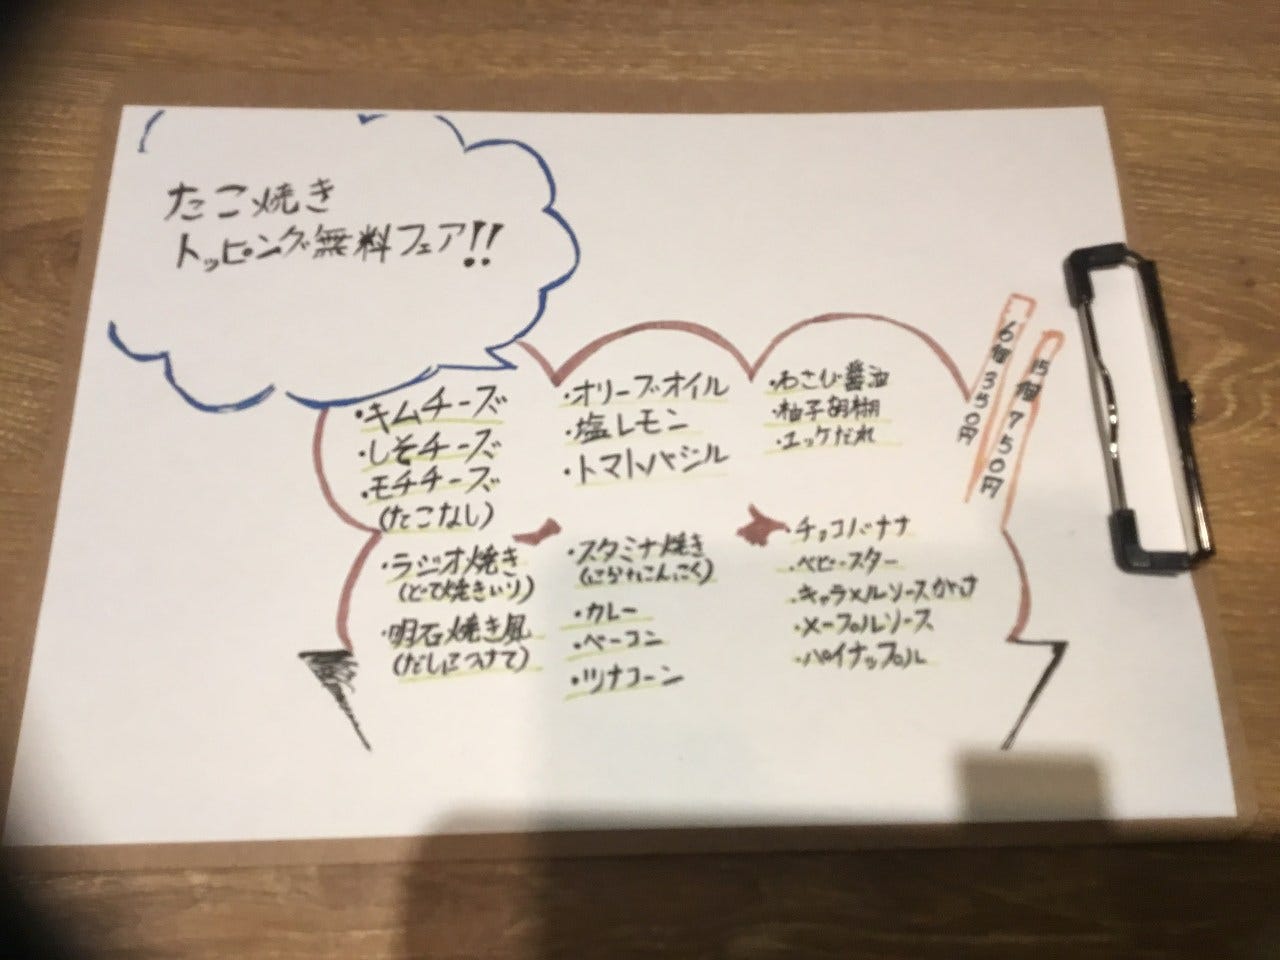 たこ焼き
トッピング無料フェア!!
・キムチーズ
・しそチーズ
・モチチーズ
(たこなし)
・オリーブオイル
・塩レモン
・トマトバジル
・わさび醤油
・柚子胡椒
・ユッケだれ
6個350円
15個750円
・ラジオ焼き
(どて焼き入り)
・明石焼き風
(だしにつけて)
・スタミナ焼き
(にらたれにんにく)
・カレー
・ベーコン
・ツナコーン
・チョコバナナ
・ベビースター
・キャラメルソースがけ
・メープルソース
・パイナップル